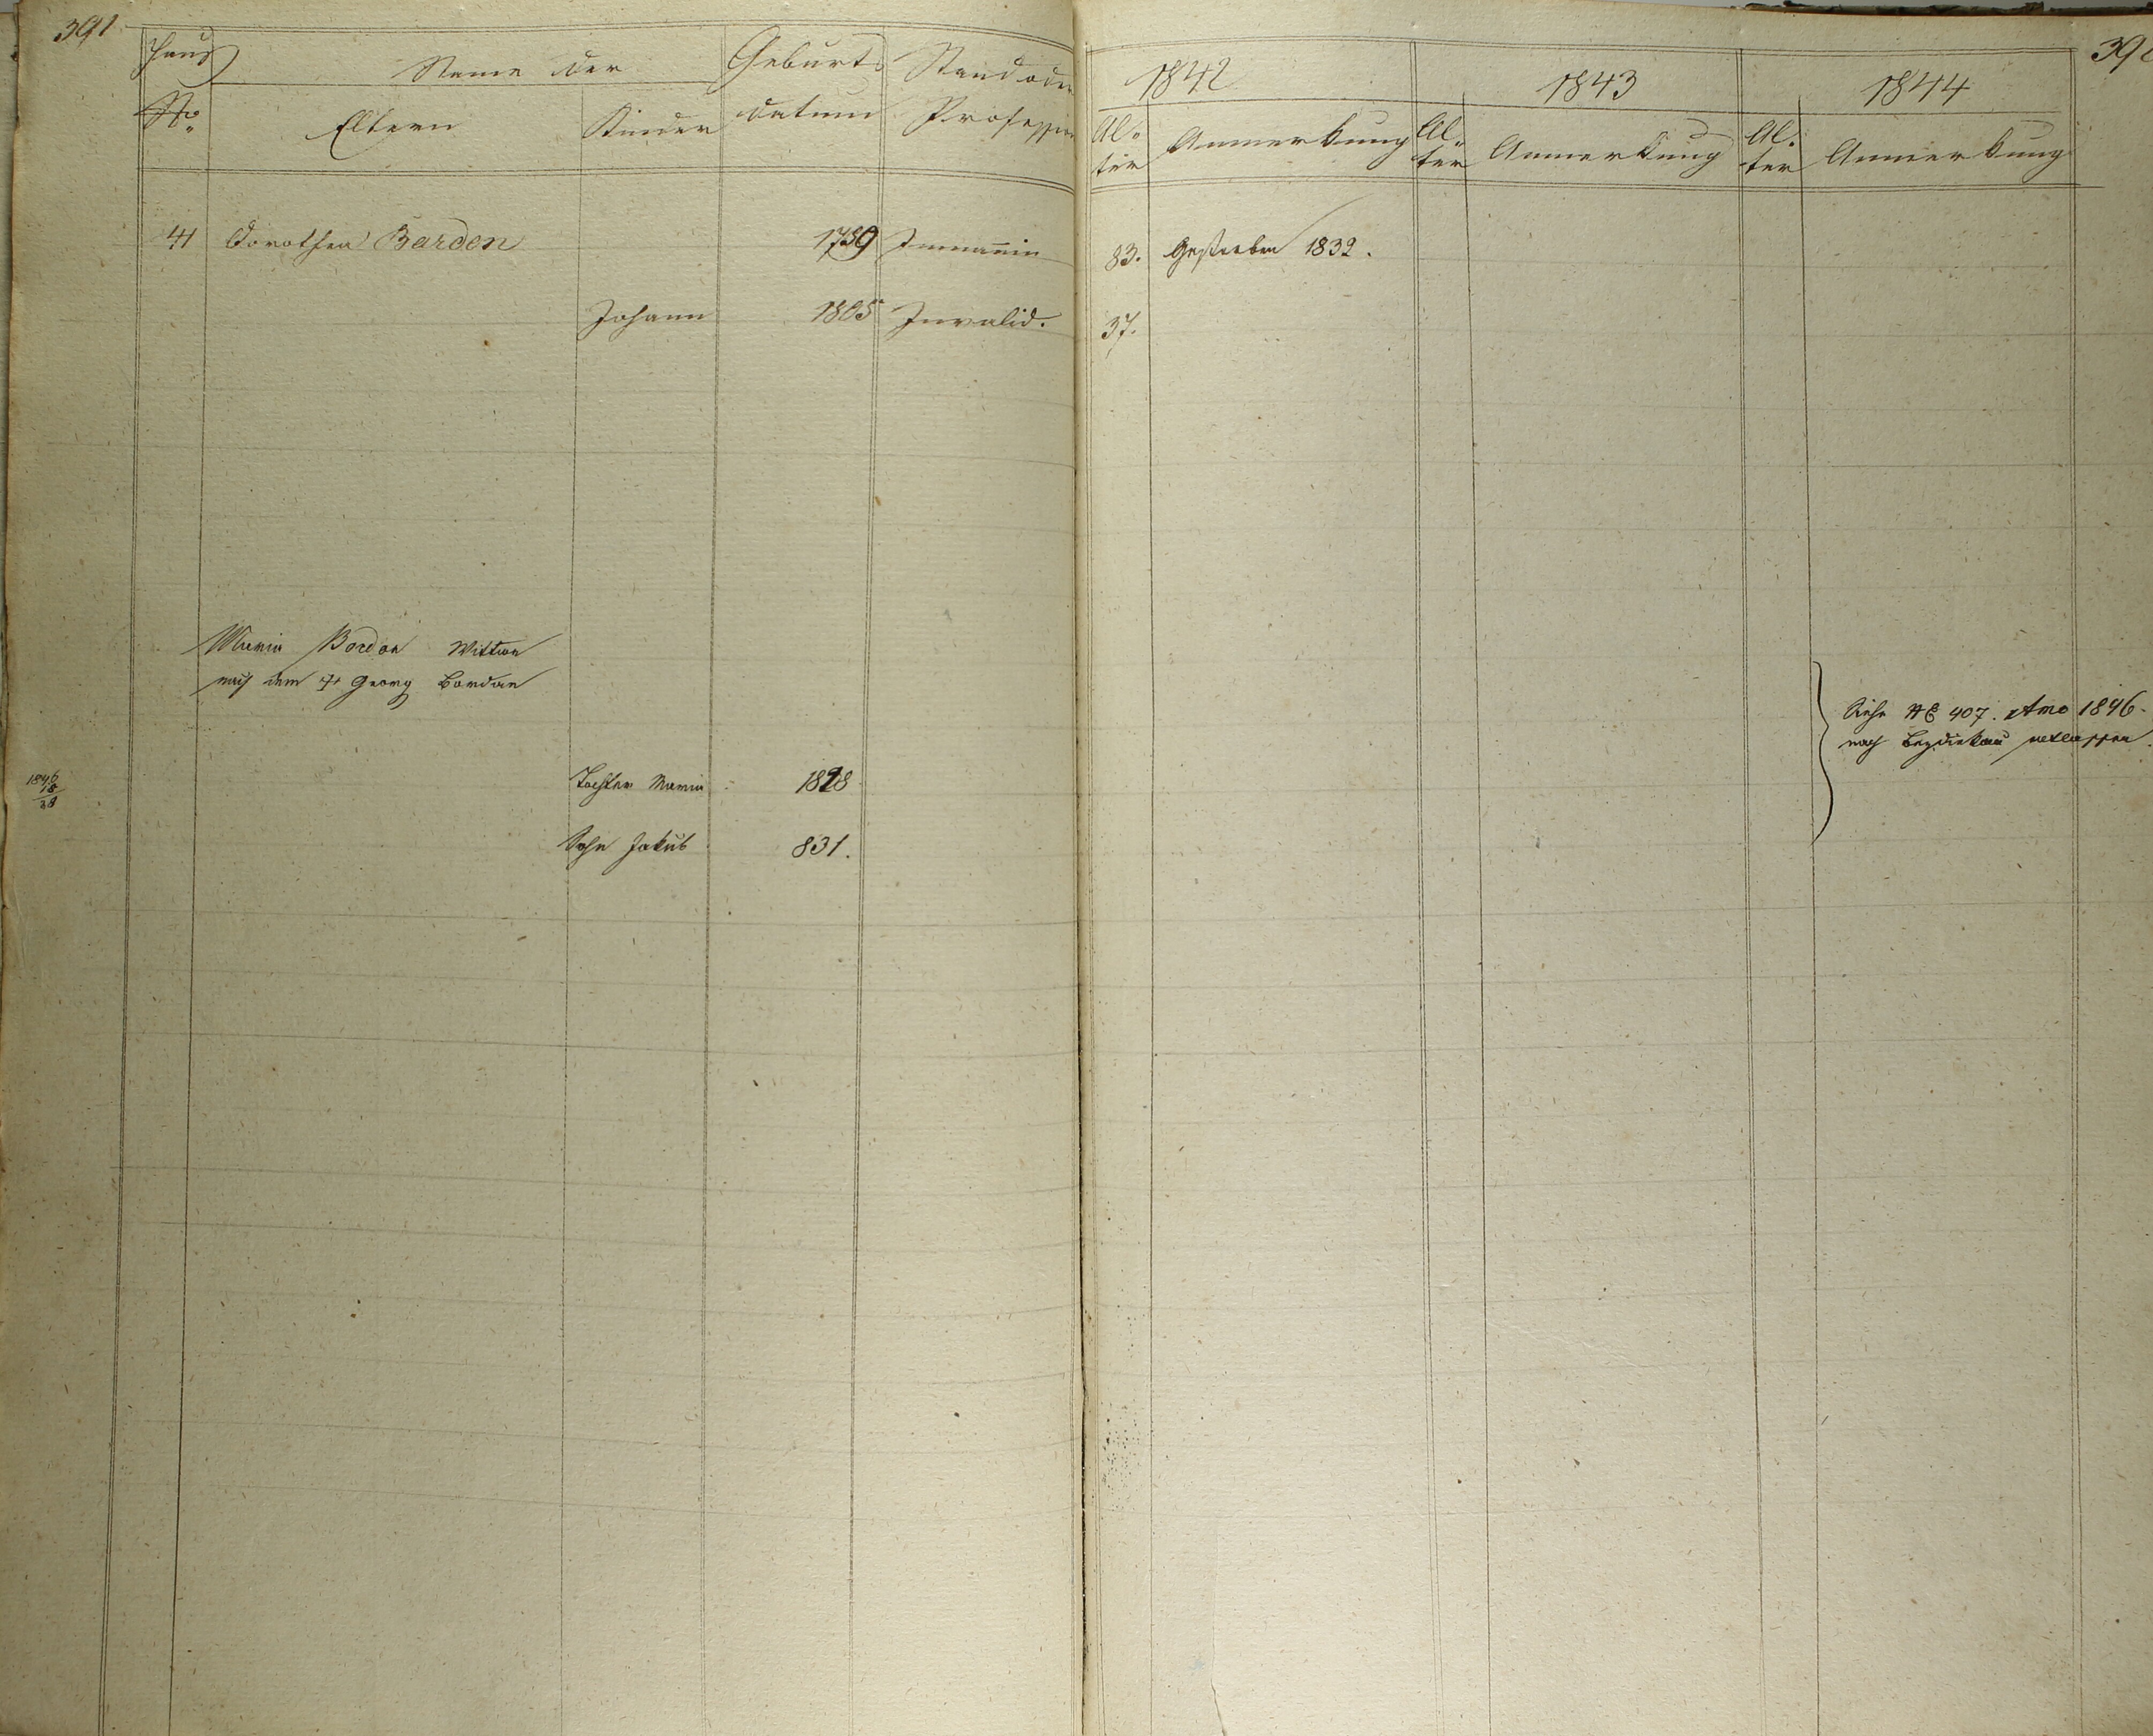 391
Haus
Nro
Name der
Eltern
Kinder
Geburts
datum
Stand oder
Profession
1842
Al-
ter
Anmerkung
1843
Al-
ter
Anmerkung
1844
Al-
ter
Anmerkung
41 Dorothea Barden 17 Inmannin 83. Gestorben 1832.
Johann 1805 Invalid. 37.
Maria Bordon Wittwe
nach dem † Georg Bordan
Siehe 407. Anno 1846.
nach entlassen.
1846
18
Tochter Maria 1828
Sohn Jakub 831.